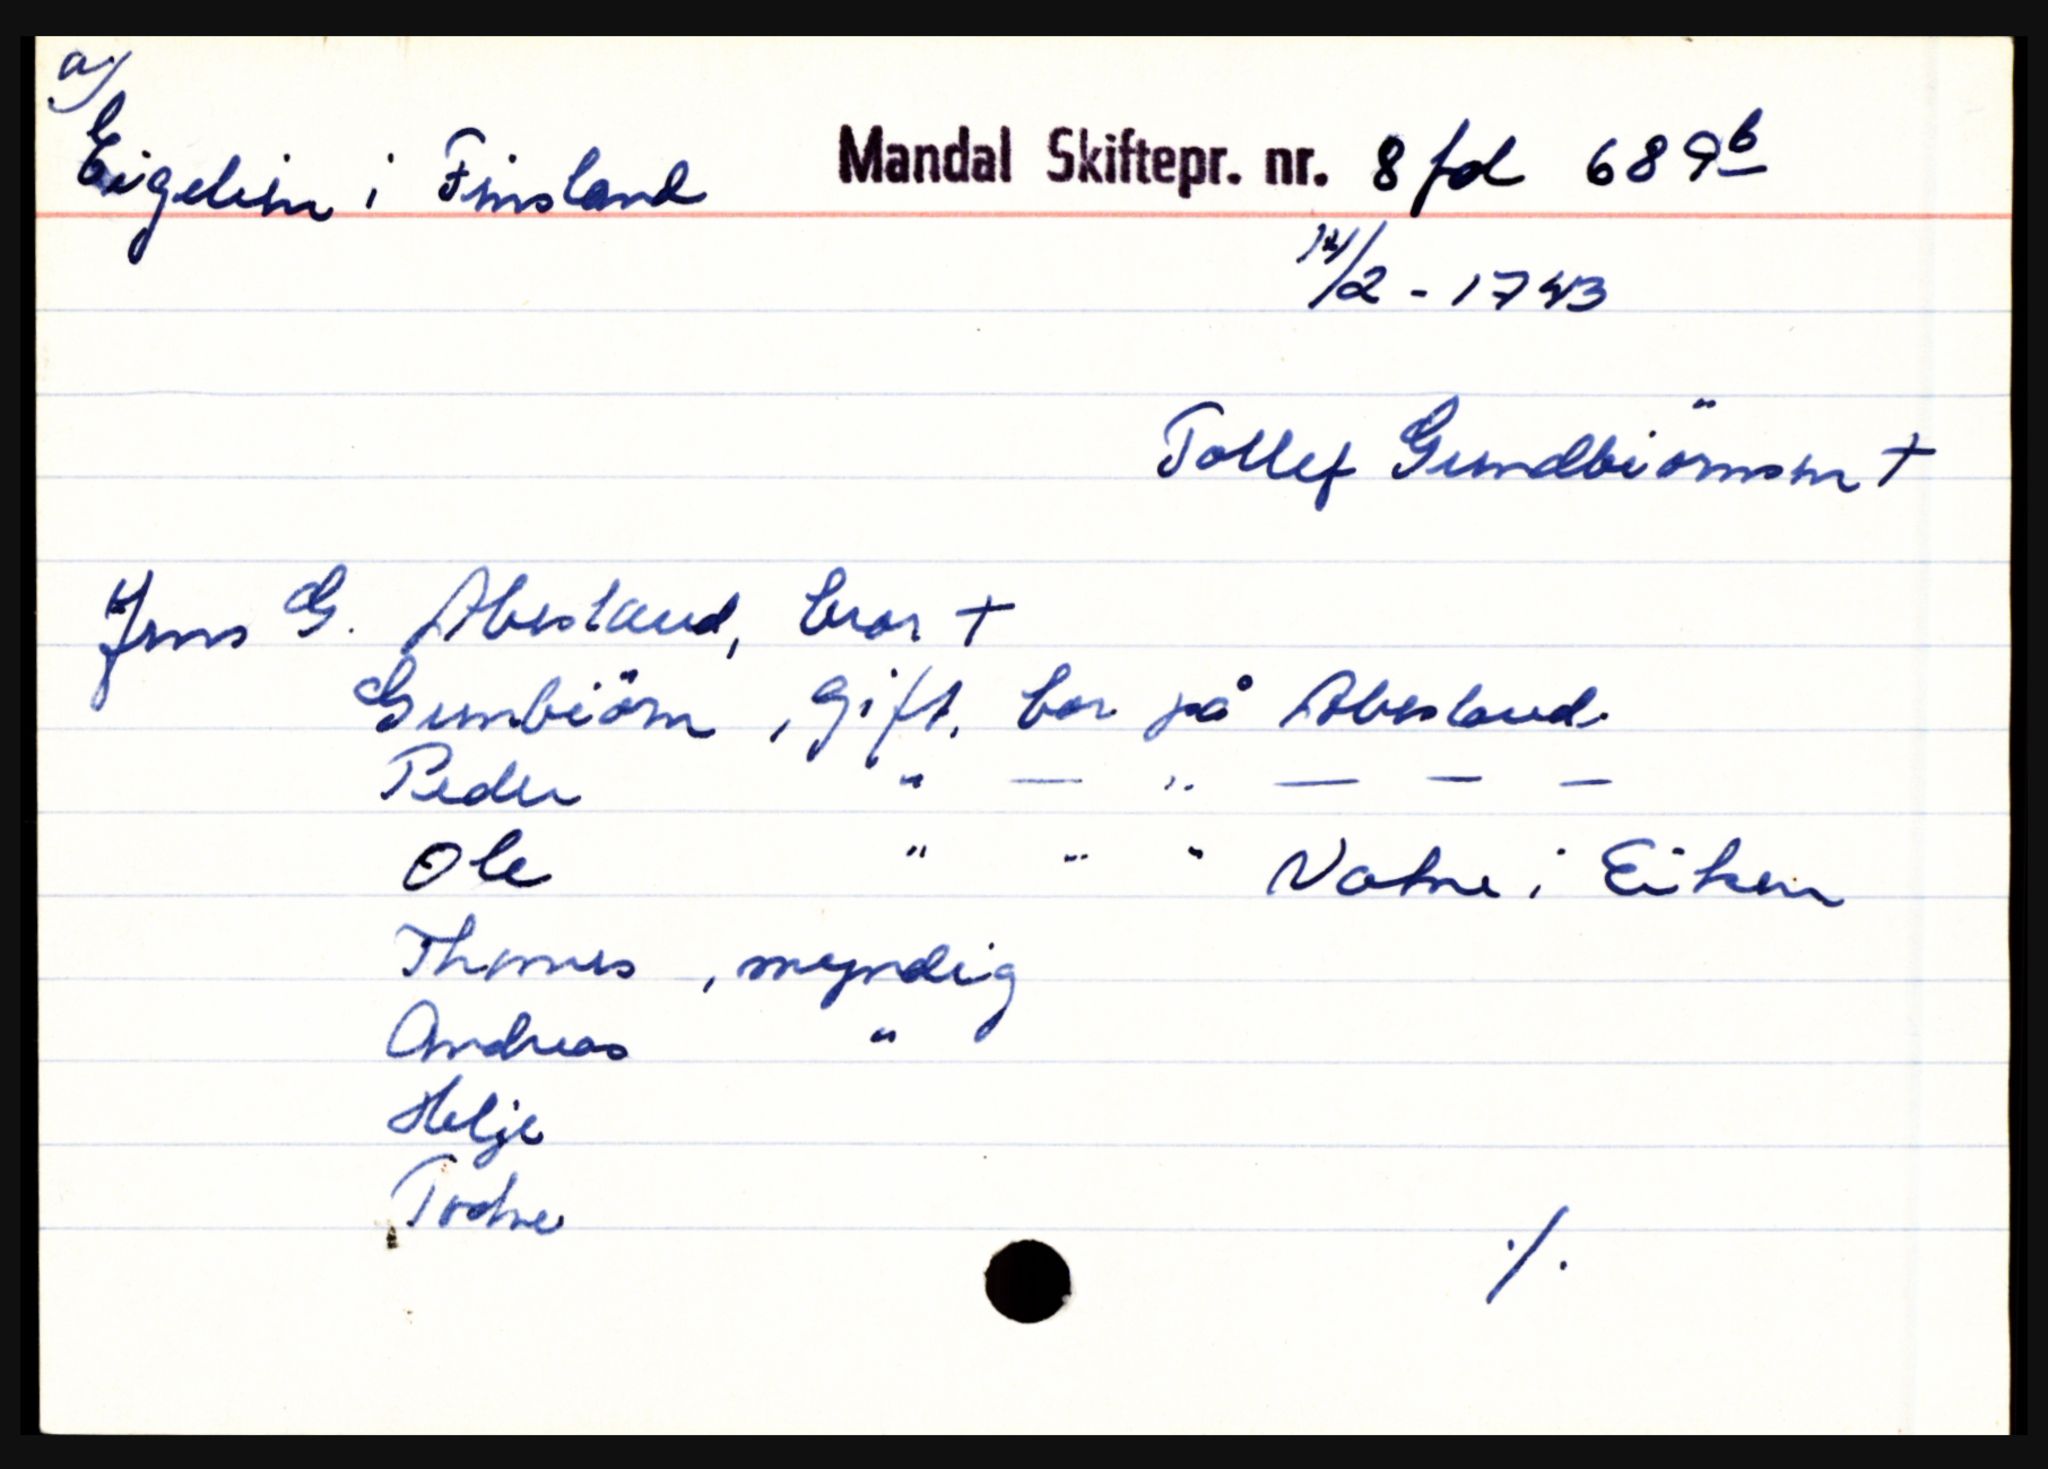 a/
Eigelim i Finsland Mandal Skiftepr. nr. 8 fol 689b
14/2 - 1743
Tollef Gundbiörnsen +
Jens G. Abesland, bror +
Gunbiörn, gift, bor på Abesland.
Peder " — " — — —
Ole " " " Vatne i Eiken
Thomas, myndig
Andreas "
Helje
Todne
./.